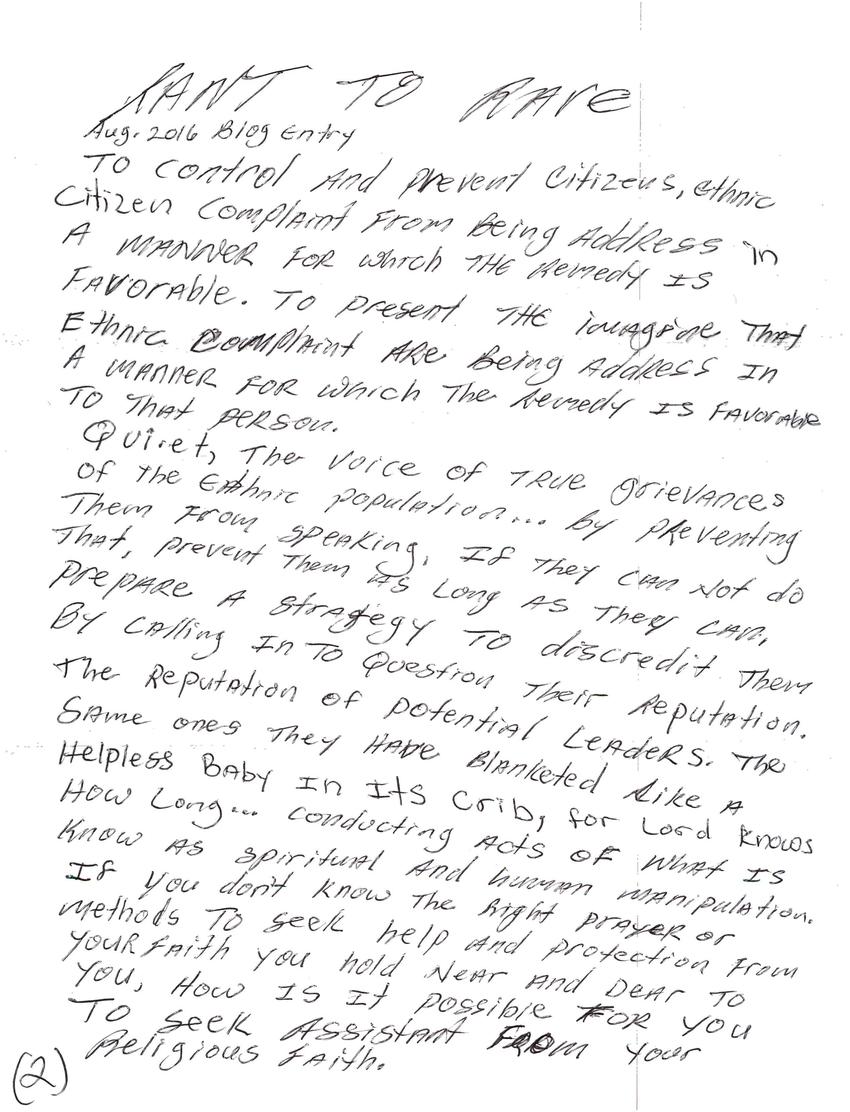 RANT TO RAVE
Aug. 2016 Blog Entry
To control And prevent Citizens, ethnic
Citizen Complaint From Being Address in
A MANNER FOR which THE Remedy IS
Favorable. To present THE imagine That
Ethnic Complaint ARE Being Address In
A manner for which The Remedy IS Favorable
To That person.
Quiet, The Voice of True Grievances
of The Ethnic population... by preventing
Them From speaking, If They can Not do
That, prevent Them As Long As They can,
prepare A strategy To discredit Them
By calling InTo Question Their Reputation.
The Reputation of potential Leaders. The
Same ones They Have Blanketed Like A
Helpless Baby In Its Crib, for Lord knows
How Long... conducting Acts of what Is
Know As spiritual And human manipulation.
If you don't know The Right prayer or
methods To seek help And protection From
your Faith you hold Near And Dear To
You, How Is It possible For You
To seek Assistant From Your
Religious Faith.
(2)